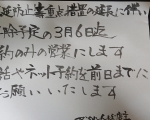 延防止等重点措置の延長に伴い
解除予定の3月6日迄
約のみの営業にします
話やネット予約を前日までに
お願いいたします